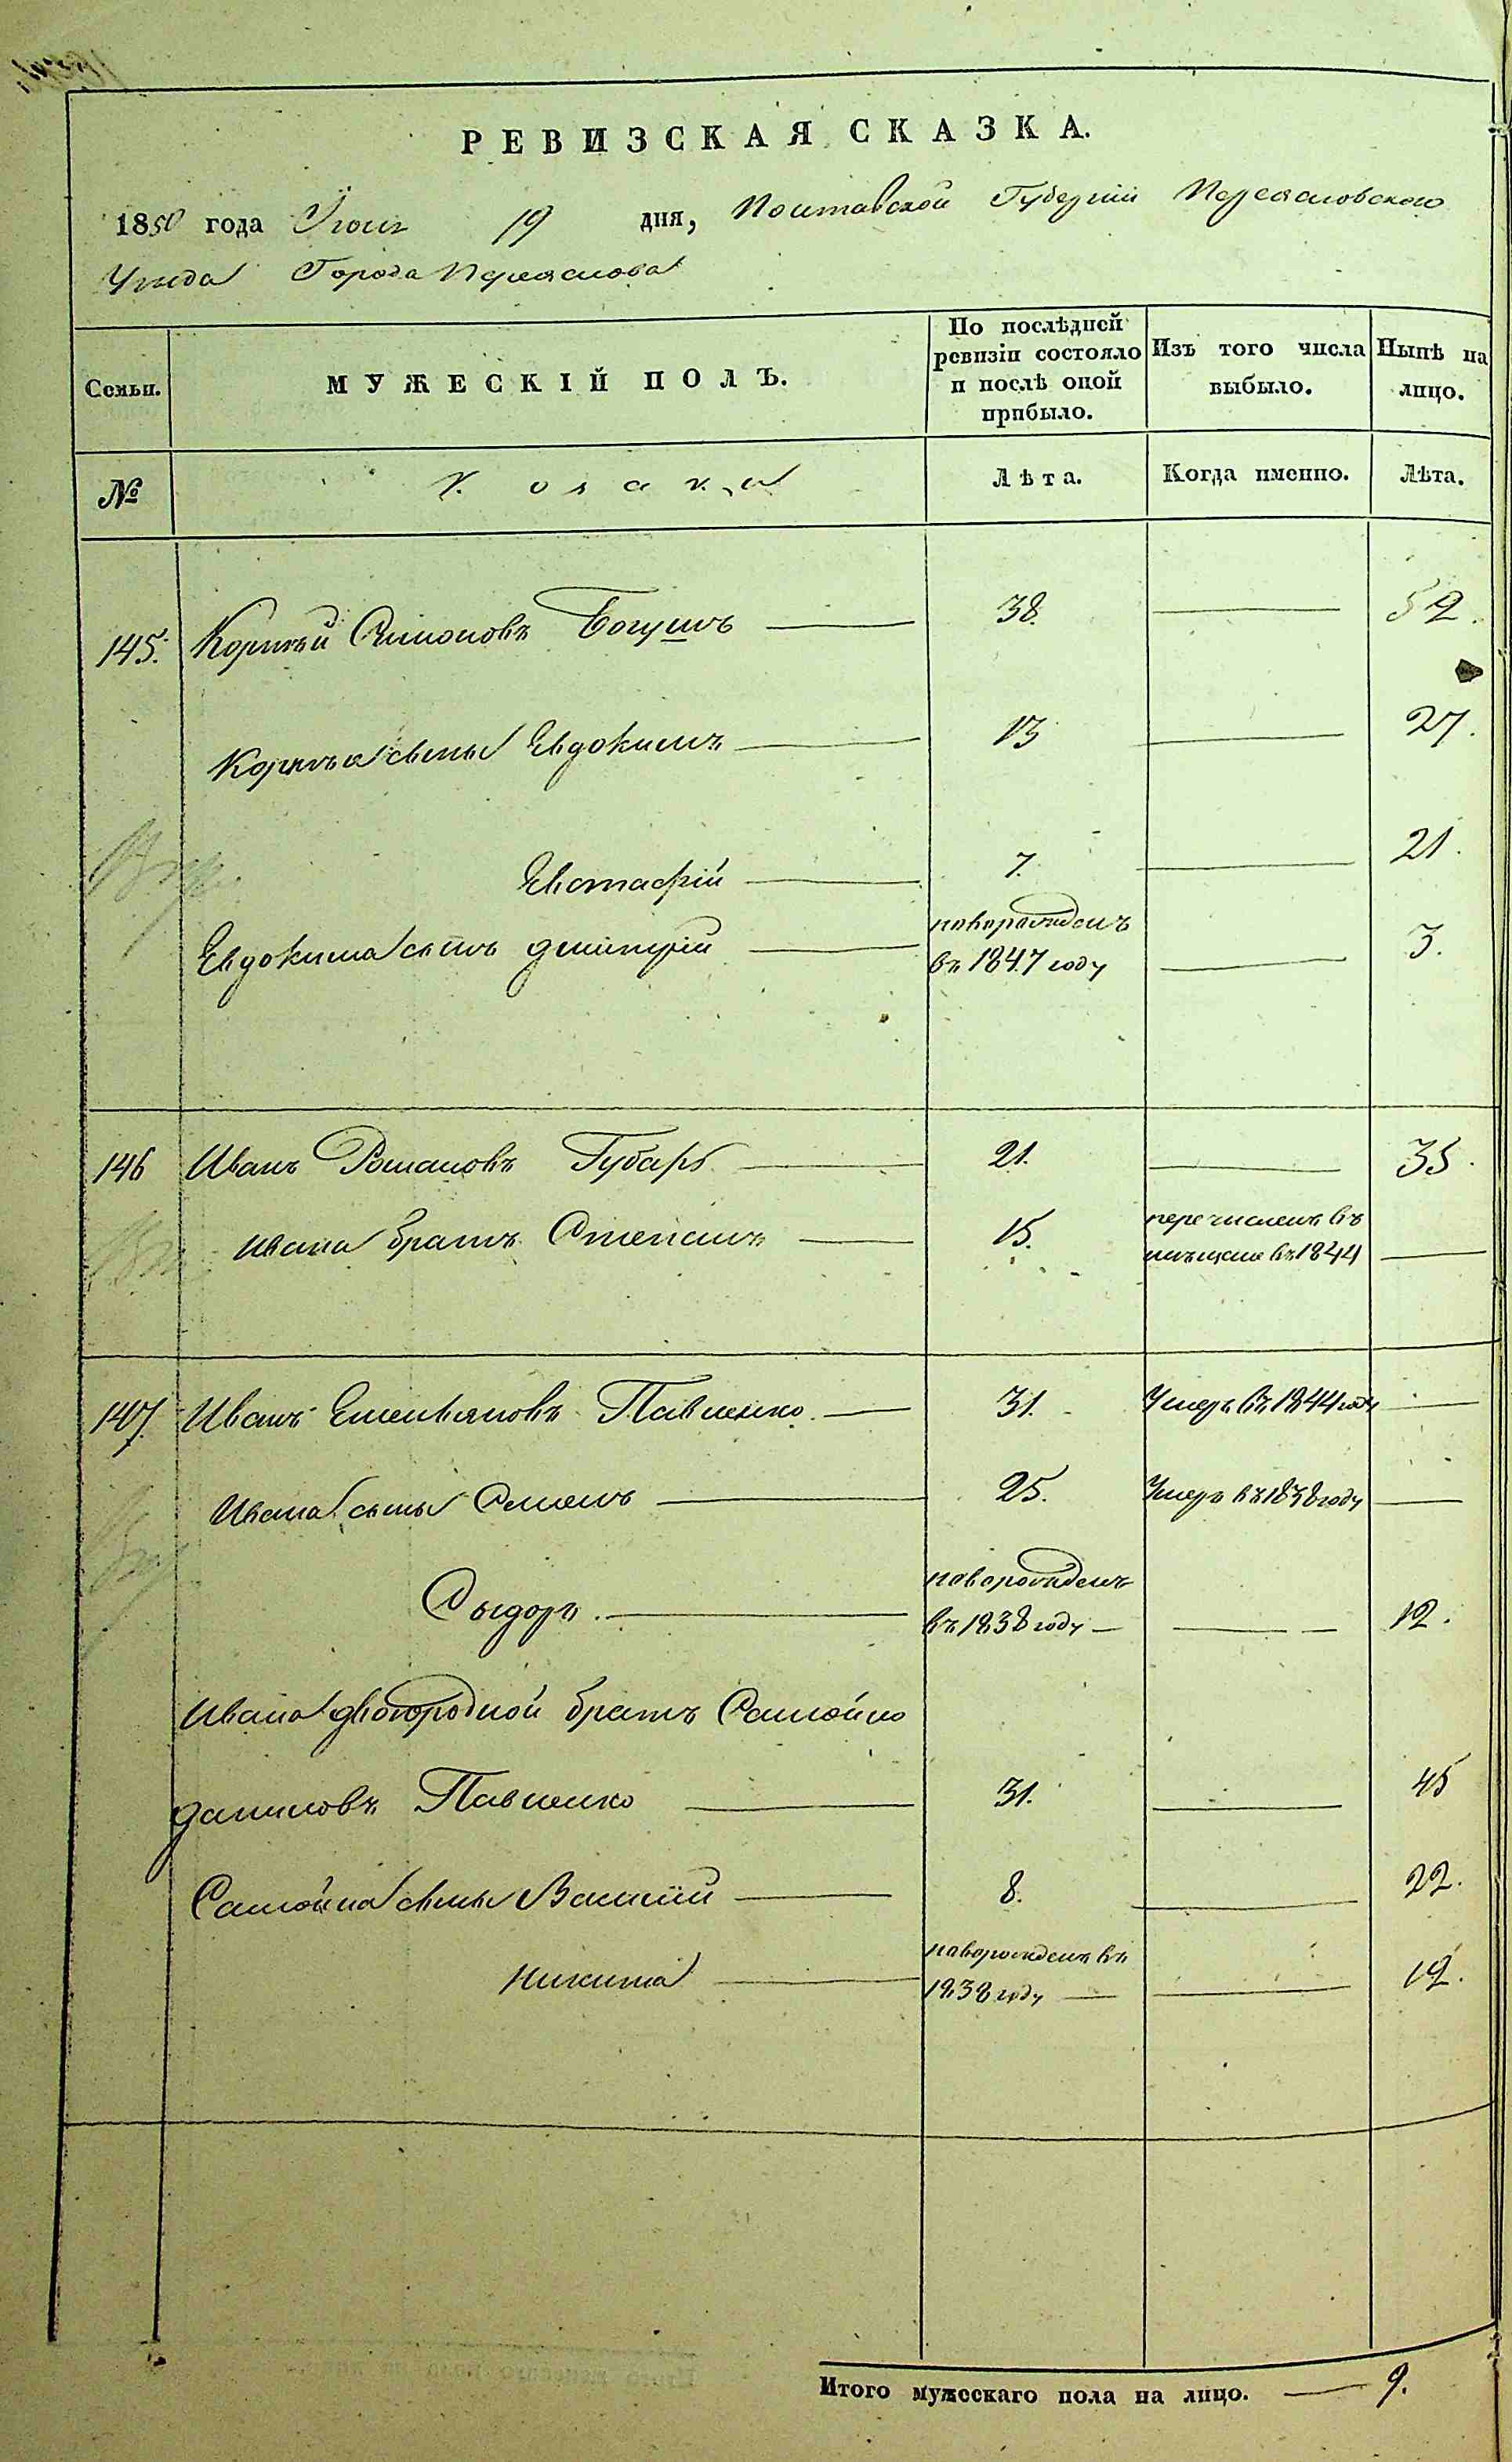 РЕВИЗСКАЯ СКАЗКА.
1850 года Іюня 19 дня, Полтавской Губерніи Переясловского
Уезда Города Переяслова
Семьи. МУЖЕСКІЙ ПОЛЪ. По послѣдней ревизіи состояло и послѣ оной прибыло. Изъ того числа выбыло. Нынѣ на лицо.
№ Козаки Лѣта. Когда именно. Лѣта.
145. Корнѣй Симоновъ Богушъ 38. 52.
Корнѣя сыны Евдокимъ 13 27.
Евстафій 7. 21.
Евдокима сынъ Дмитрій новорожденъ въ 1847 году 3.
146 Иванъ Романовъ Губарь 21. 35.
Ивана братъ Степанъ 15. перечисленъ въ мѣщане въ 1844
147. Иванъ Емельяновъ Павленко 31. Умеръ въ 1844 году
Ивана сыны Семенъ 25. Умеръ въ 1838 году
Сыдоръ новорожденъ въ 1838 году 12.
Ивана двоюродной братъ Самойло
Даниловъ Павленко 31. 45
Самойла сыны Василій 8. 22.
Никита новорожденъ въ 1838 году 12.
Итого мужескаго пола на лицо. 9.